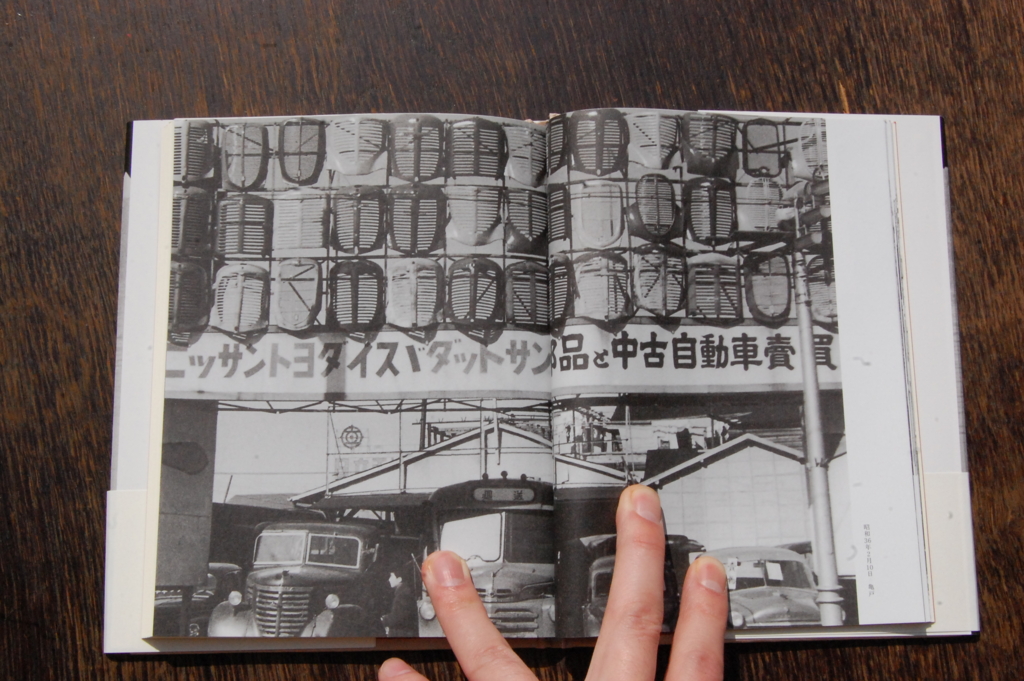 ニッサントヨダイスヾダットサン部品と中古自動車賣買
昭和36年2月10日 亀戸